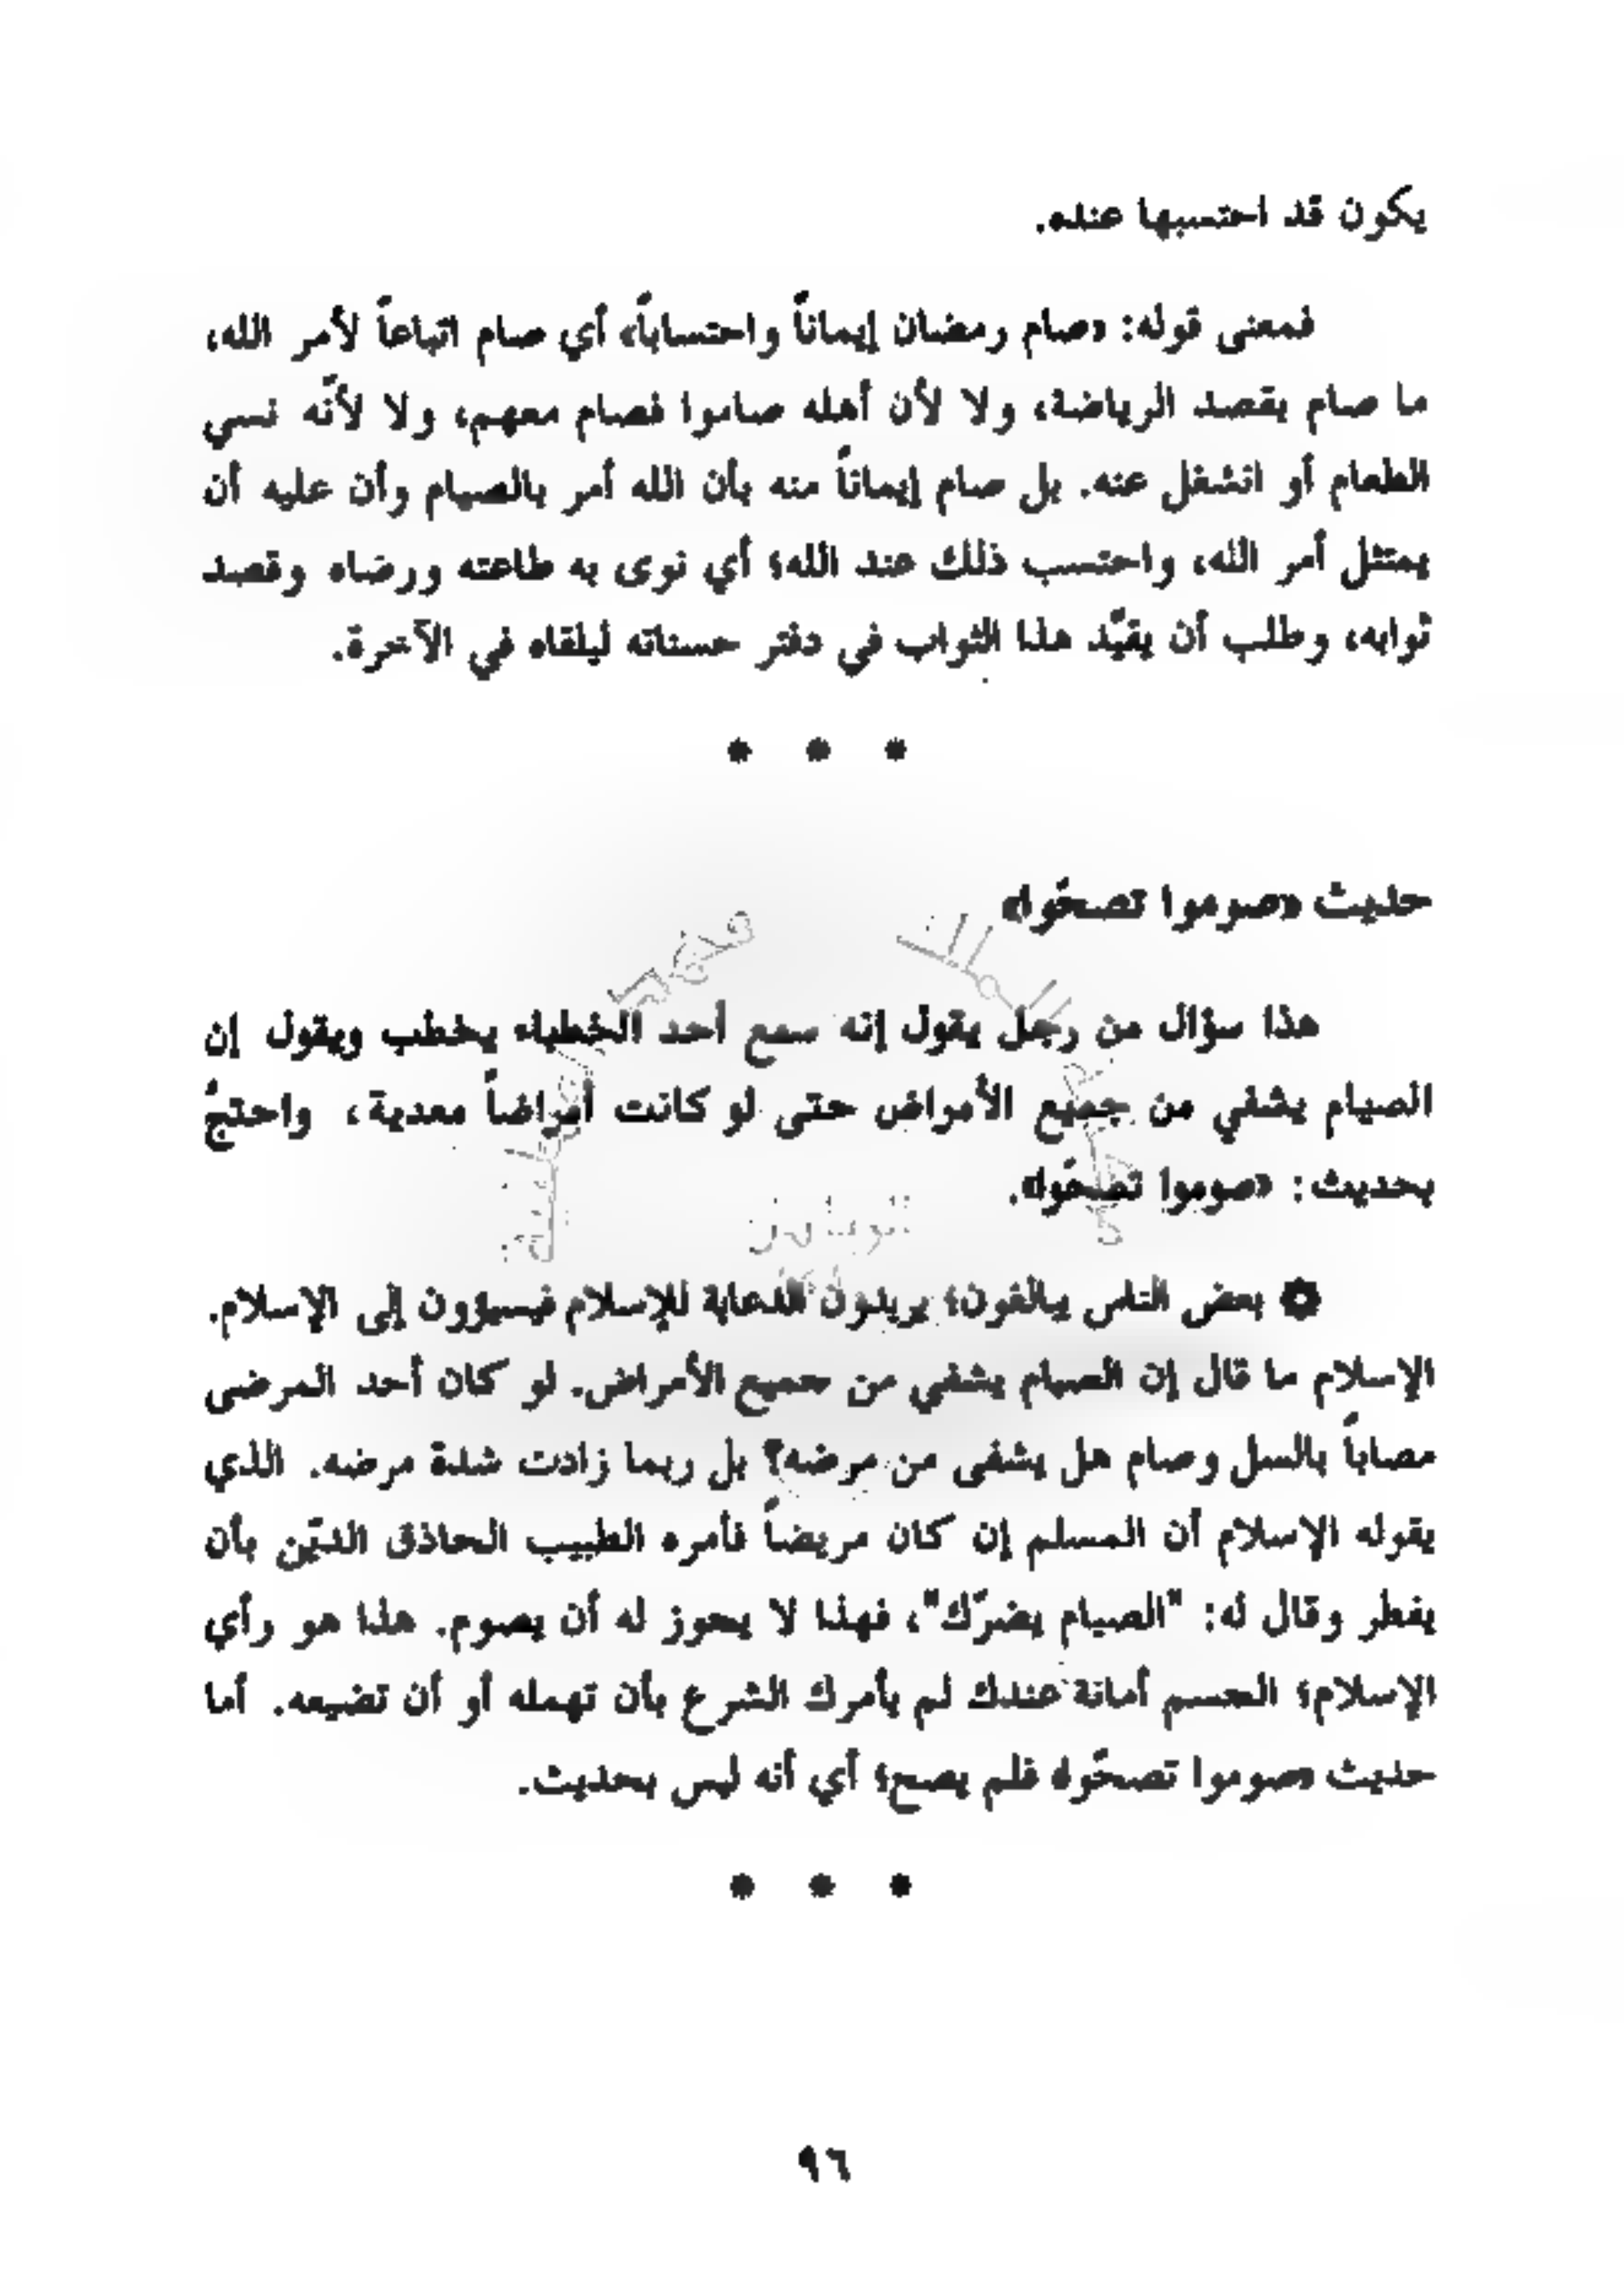 يكون قد احتسبها عنده.
فمعنى قوله: «صام رمضان إيماناً واحتساباً» أي صام اتباعاً لأمر الله،
ما صام بقصد الرياضة، ولا لأن أهله صاموا فصام معهم، ولا لأنّه نسي
الطعام أو انشغل عنه. بل صام إيماناً منه بأن الله أمر بالصيام وأن عليه أن
يمتثل أمر الله، واحتسب ذلك عند الله؛ أي نوى به طاعته ورضاه وقصد
ثوابه، وطلب أن يقيَّد هذا الثواب في دفتر حسناته ليلقاه في الآخرة.
* * *
حديث «صوموا تصحّوا»
هذا سؤال من رجل يقول إنه سمع أحد الخطباء يخطب ويقول إن
الصيام يشفي من جميع الأمراض حتى لو كانت أمراضاً معدية، واحتجّ
بحديث: «صوموا تصحّوا».
بعض الناس يبالغون؛ يريدون الدعاية للإسلام فيسيؤون إلى الإسلام.
الإسلام ما قال إن الصيام يشفي من جميع الأمراض. لو كان أحد المرضى
مصاباً بالسل وصام هل يشفى من مرضه؟ بل ربما زادت شدة مرضه. الذي
يقوله الإسلام أن المسلم إن كان مريضاً فأمره الطبيب الحاذق الديّن بأن
يفطر وقال له: "الصيام يضرّك"، فهذا لا يجوز له أن يصوم. هذا هو رأي
الإسلام؛ الجسم أمانة عندك لم يأمرك الشرع بأن تهمله أو أن تضيعه. أما
حديث «صوموا تصحّوا» فلم يصح؛ أي أنه ليس بحديث.
* * *
٩٦